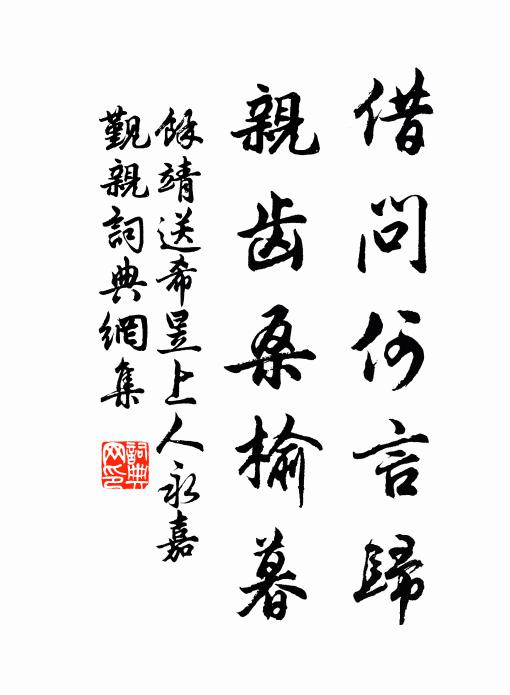 借问何言歸
親齿桑榆暮
餘靖送希昱上人永嘉
觐親詞典網集
詞典网印